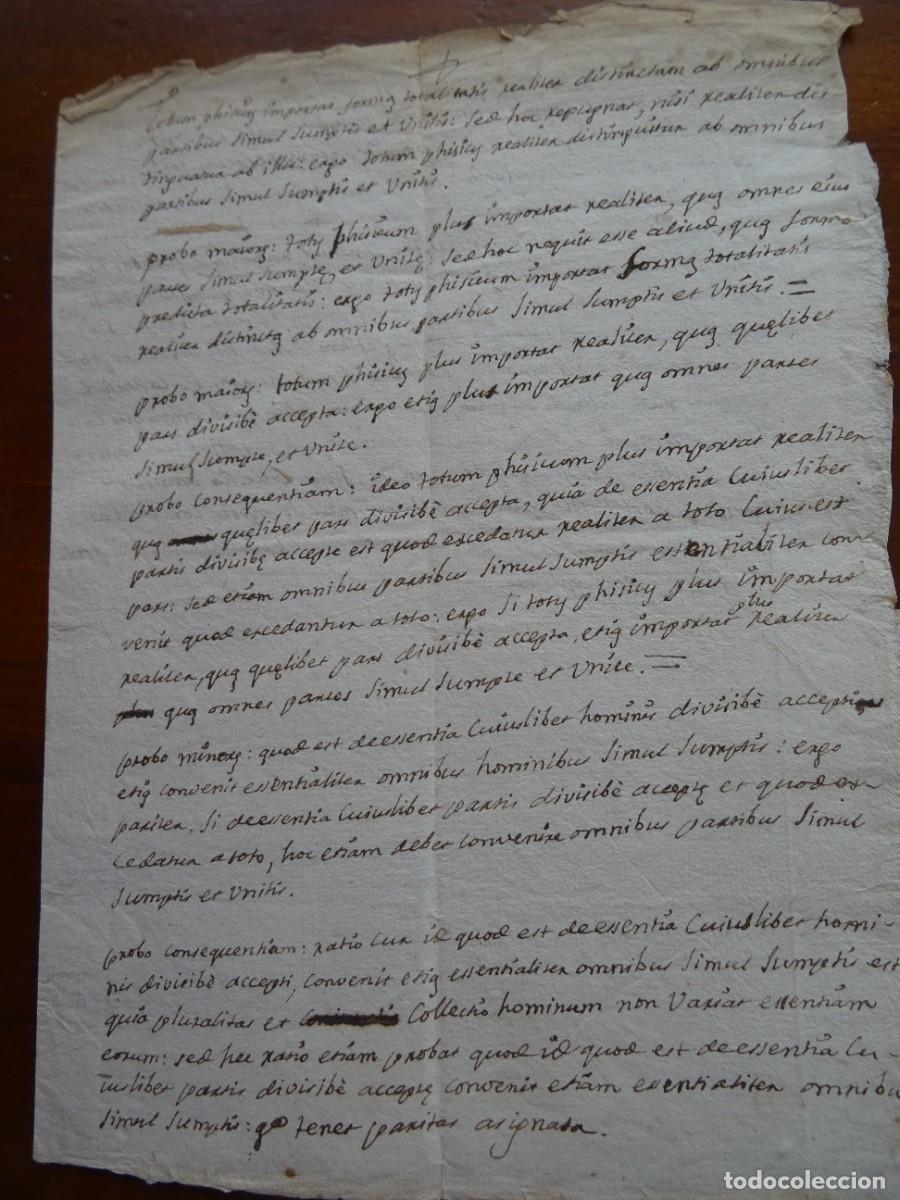 Totum phisicũ importat formã totalitatis realiter distinctam ab omnibus
partibus simul sumptis et unitis: sed hoc repugnat, nisi realiter dis
tinguatur ab illis: ergo totum phisicũ realiter distinguitur ab omnibus
partibus simul sumptis et unitis.
probo maiorẽ: totũ phisicum plus importat realiter, quã omnes eius
partes simul sumptę, et unitę: sed hoc nequit esse aliud, quã forma
predicta totalitatis: ergo totũ phisicum importat formã totalitatis
realiter distinctã ab omnibus partibus simul sumptis et unitis. =
probo maiorẽ: totum phisicũ plus importat realiter, quã quęlibet
pars divisibè accepta: ergo etiã plus importat quã omnes partes
simul sumpte, et unite.
probo consequentiam: ideo totum phisicum plus importat realiter
quã quęlibet pars divisibè accepta, quia de essentia cuiuslibet
partis divisibę accepte est quod excedatur realiter a toto cuius est
pars: sed etiam omnibus partibus simul sumptis essentialiter con
venit quod excedantur a toto: ergo si totũ phisicũ plus importat
realiter, quã quęlibet pars divisibè accepta, etiã importat plus realiter
quã omnes partes simul sumpte et unite. =
probo minorẽ: quod est de essentia cuiuslibet hominis divisibè accepti
etiã convenit essentialiter omnibus hominibus simul sumptis: ergo
pariter, si de essentia cuiuslibet partis divisibè acceptę et quod ex-
cedatur a toto, hoc etiam debet convenire omnibus partibus simul
sumptis et unitis.
probo consequentiam: ratio cur id quod est de essentia cuiuslibet homi-
nis divisibè accepti, convenit etiã essentialiter omnibus simul sumptis est
quia pluralitas et collectio hominum non variat essentiam
eorum: sed hec ratio etiam probat quod id quod est de essentia cu-
iuslibet partis divisibè acceptę convenit etiam essentialiter omnibu
simul sumptis: gº tenet paritas asignata.
todocoleccion